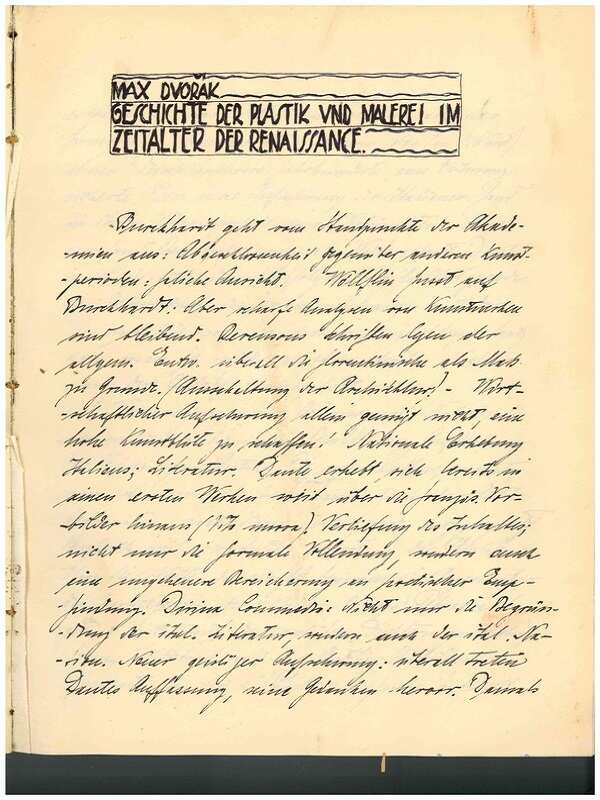 MAX DVOŘÁK
GESCHICHTE DER PLASTIK VND MALEREI IM
ZEITALTER DER RENAISSANCE.
Burckhardt geht vom Standpunkte der Akade-
-mien aus: Abgeschlossenheit gegenüber anderen Kunst-
-perioden: Ansicht. Wölfflin fusst auf
Burckhardt: Aber scharfe Analysen von Kunstwerken
sind bleibend. Berensons Schriften legen der
allgem. Entw. überall die florentinische als Mass
zu Grunde. (Ausschaltung der Architektur!) - Wirt-
-schaftlicher Aufschwung allein genügt nicht, eine
hohe Kunstblüte zu schaffen! Nationale Erhebung
Italiens; Literatur. Dante erhebt sich bereits in
seinen ersten Werken weit über die französ. Vor-
-bilder hinaus (Vita nuova). Vertiefung des Inhaltes;
nicht nur die formale Vollendung, sondern auch
eine ungeheuere Bereicherung an poetischer Emp-
-findung. Divina Commedia: Nicht nur die Begrün-
-dung der ital. Literatur, sondern auch der ital. Na-
-tion. Neuer geistiger Aufschwung: überall treten
Dantes Auffassung, seine Gedanken hervor. Damals